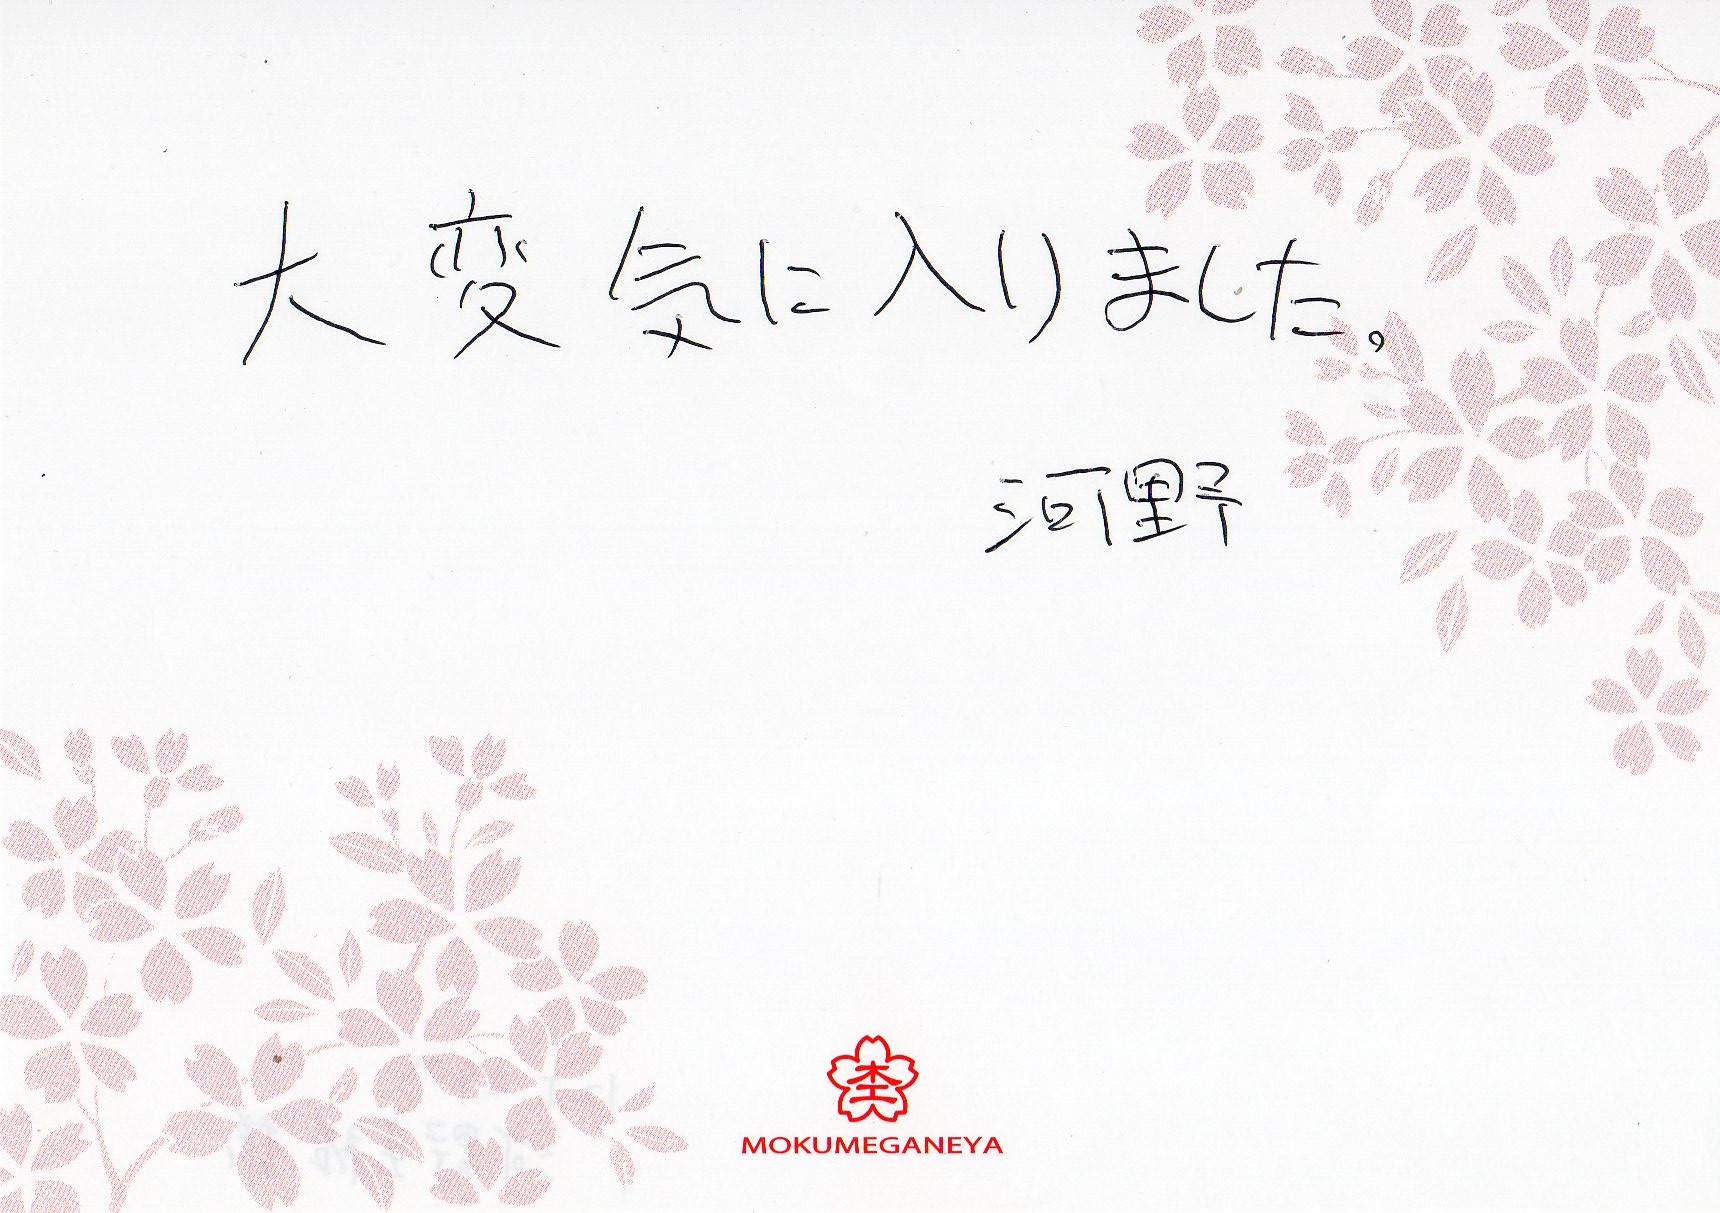 大変気に入りました。
河野
MOKUMEGANEYA